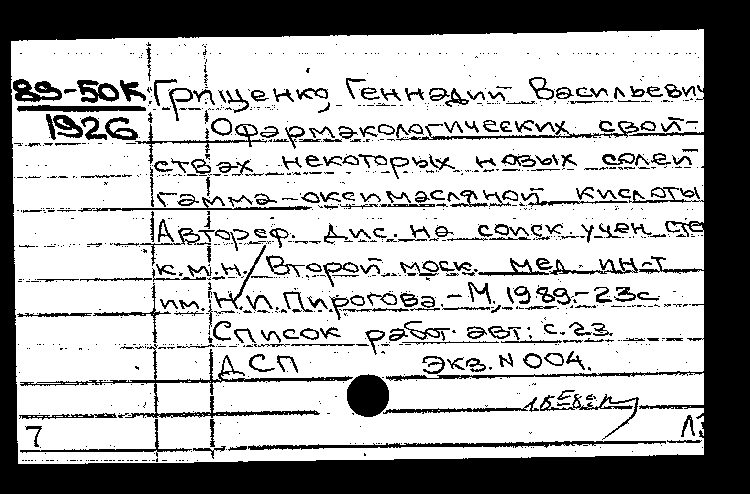 89-50К Грищенко Геннадий Васильевич
1926 О фармакологических свой-
ствах некоторых новых солей
гамма-оксимасляной кислоты
Автореф. дис. на соиск. учен сте
к.м.н./ Второй моск. мед. ин-т
им. Н.И. Пирогова.-М, 1989.-23с
Список работ авт: с.23.
ДСП Экз. N 004.
7